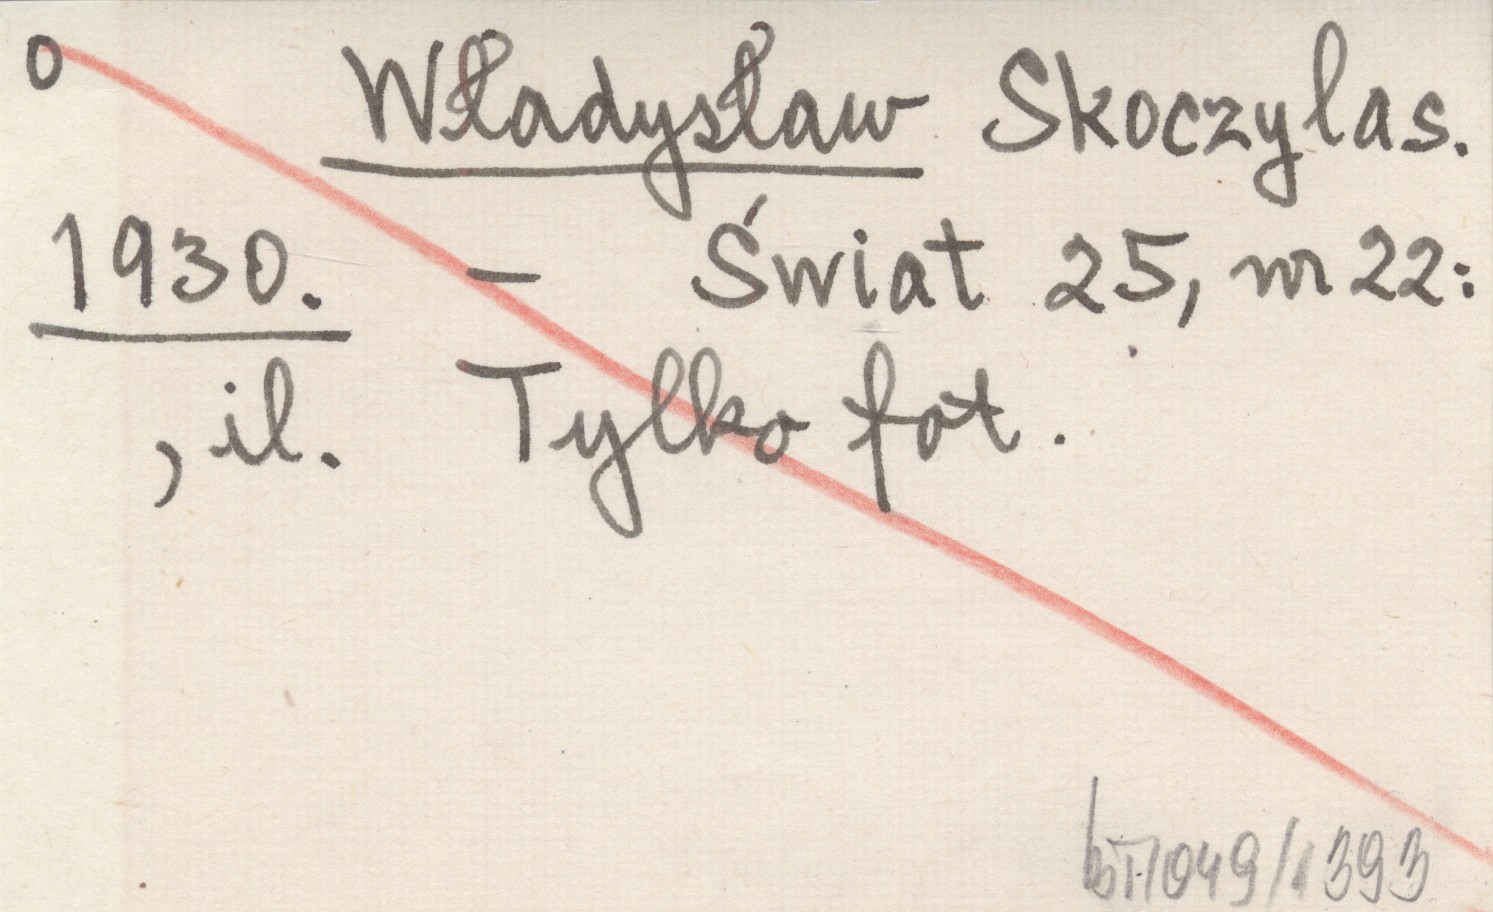 o Władysław Skoczylas.
1930. – Świat 25, nr 22:
, il. Tylko fot.